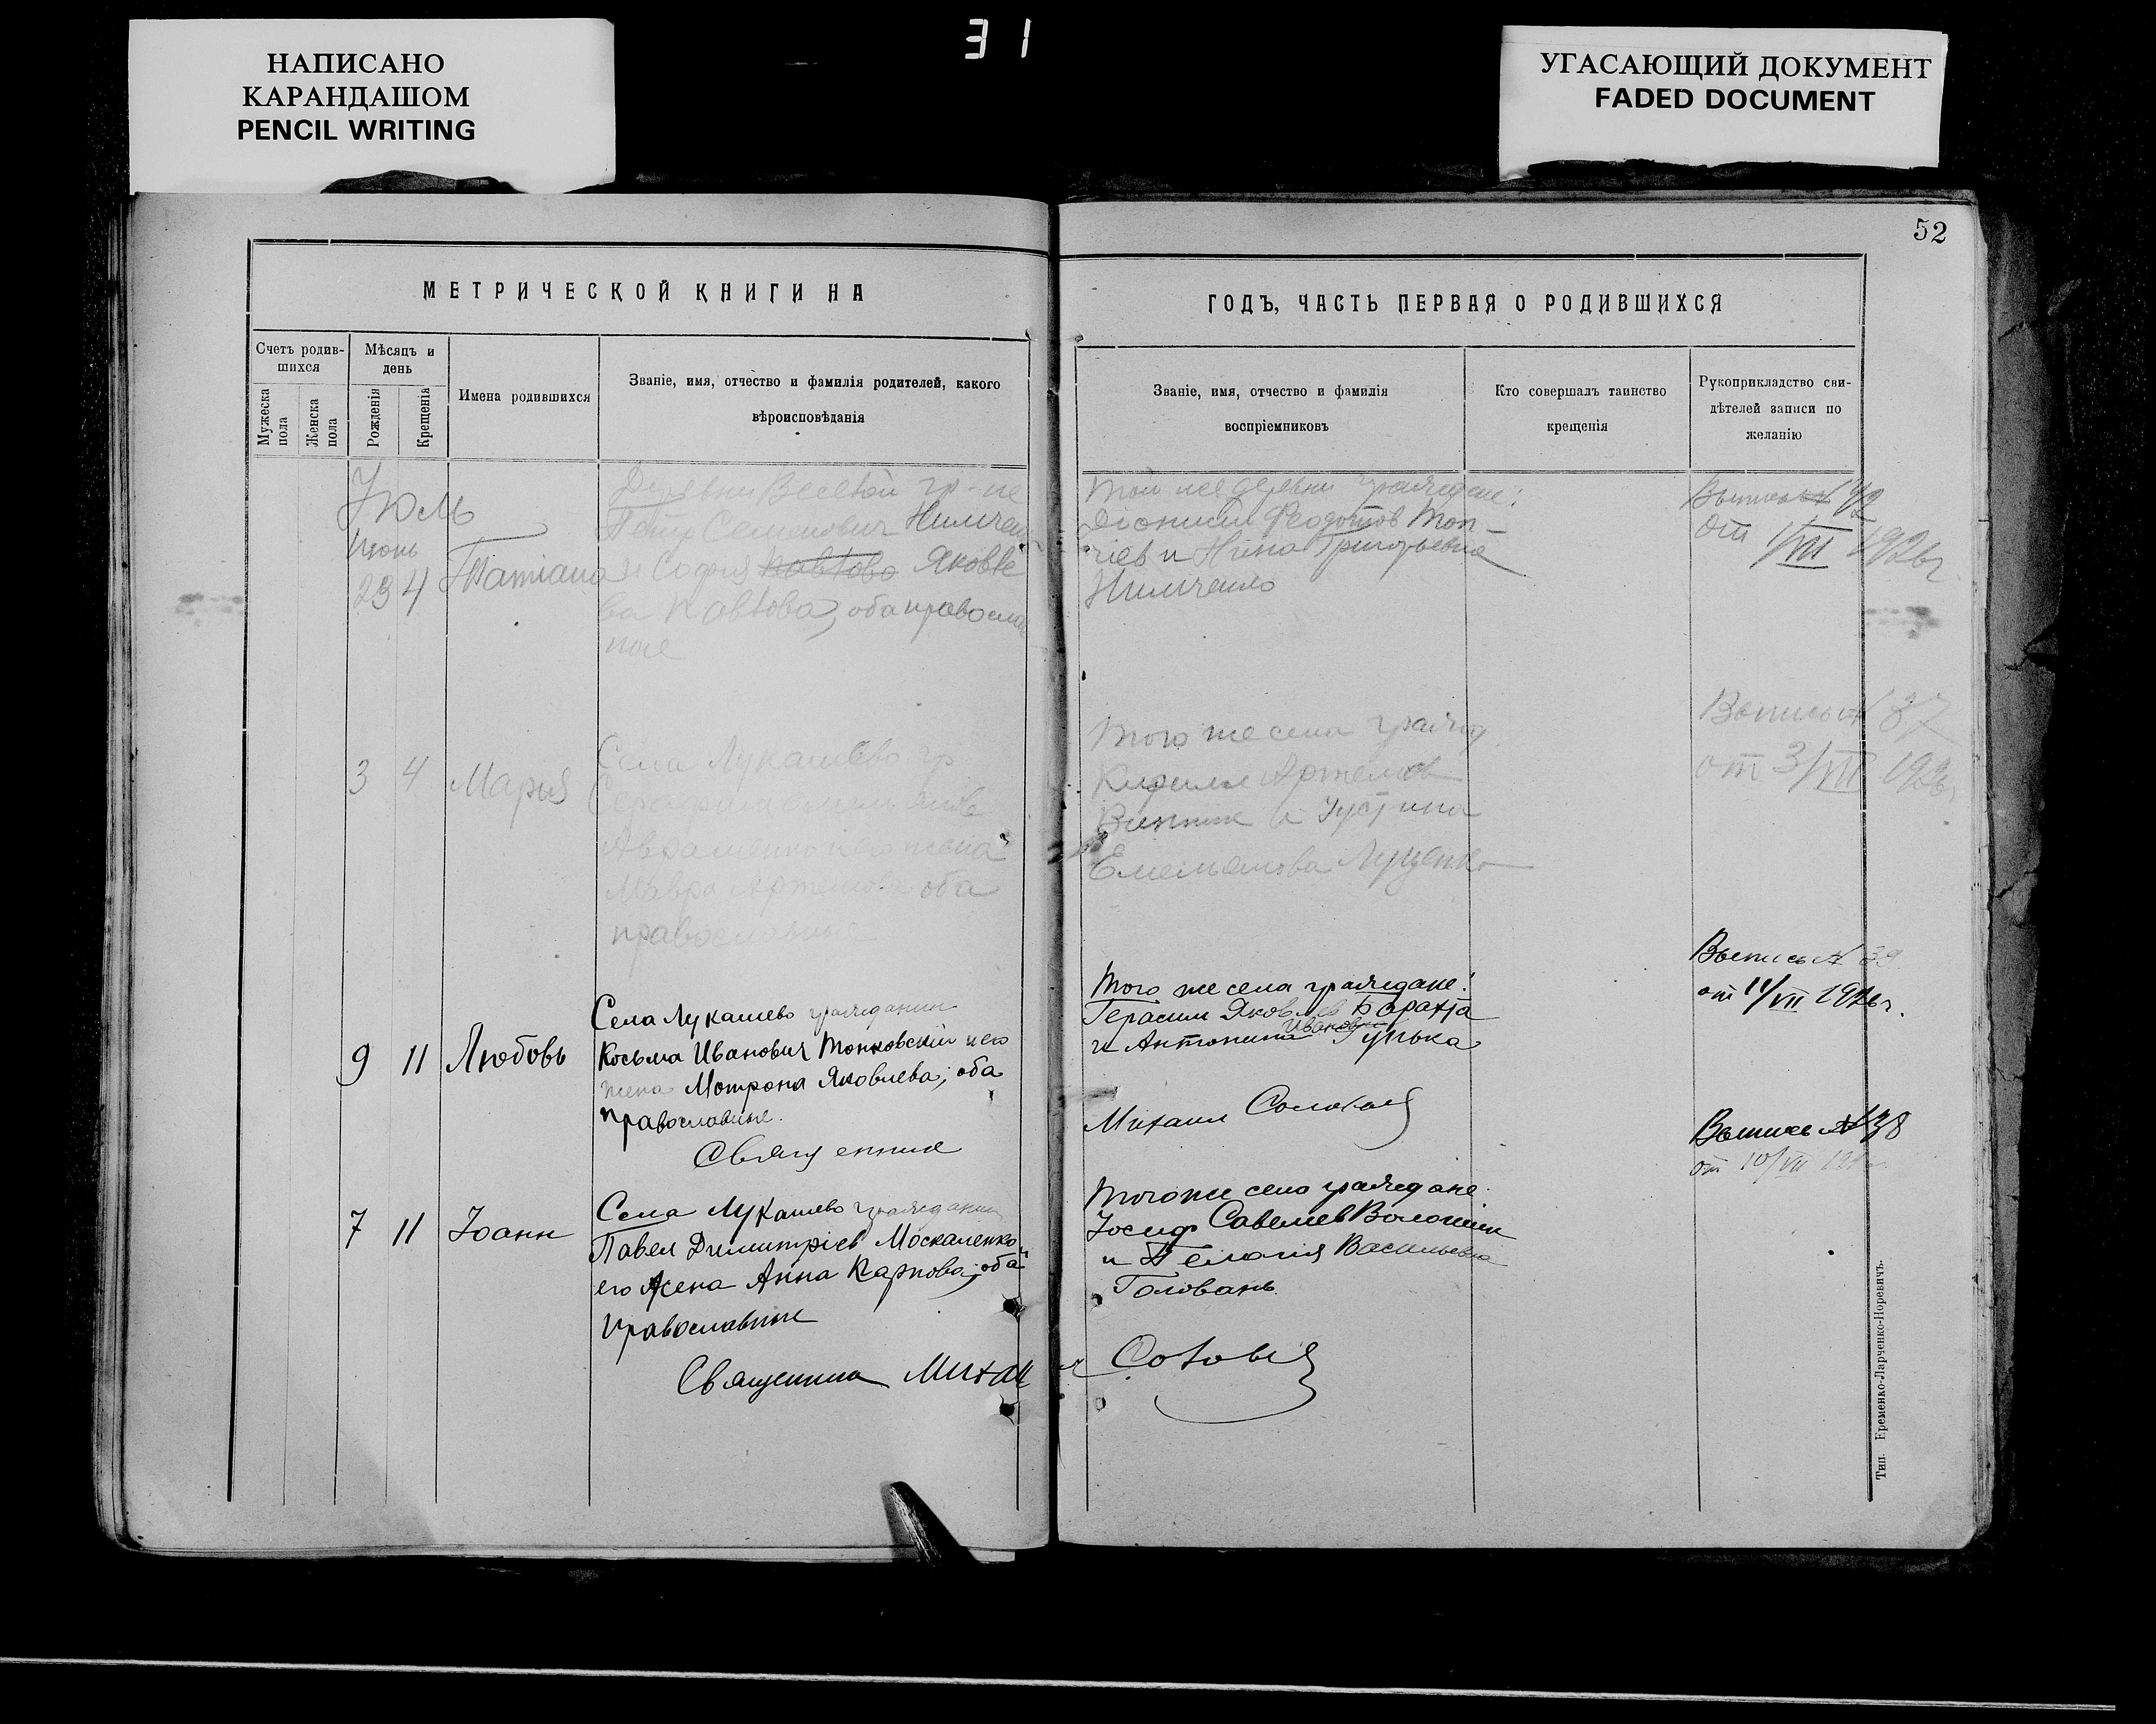 НАПИСАНО
КАРАНДАШОМ
PENCIL WRITING
31
УГАСАЮЩИЙ ДОКУМЕНТ
FADED DOCUMENT
52
МЕТРИЧЕСКОЙ КНИГИ НА
Счетъ родив-
шихся
Мѣсяцъ и
день
Мужеска
пола
Женска
пола
Рожденія
Крещенія
Имена родившихся
Званіе, имя, отчество и фамилія родителей, какого
вѣроисповѣданія
ГОДЪ, ЧАСТЬ ПЕРВАЯ О РОДИВШИХСЯ
Званіе, имя, отчество и фамилія
воспріемниковъ
Кто совершалъ таинство
крещенія
Рукоприкладство сви-
дѣтелей записи по
желанію
Июль
июнь
4 Татіана
Деревни Веселой гр-не
Петр Семенович
и София Яковле
ва оба православ
ные
Той же деревни граждане:
Діонисій Федотов Топ-
чіев и Нина Григорьевна
Нимченко
Выпись №
от 1/VII 1926 г
3 4 Мария
Села Лукашево гр
Авраменко и его жена
Мавра Артемова оба
православные
Того же села гражд
Кирилл Артемов
и Иустина
Емельянова Луценко
Выпись № 37
от 3/VII 1926 г
9 11 Любовь
Села Лукашево гражданин
Косьма Иванович Тонковский и его
жена Мотрона Яковлева; оба
православные.
Священник
Того же села граждане:
Герасим Яковлев
Ивановна
и Антонина Гунька
Михаил Соловьев
Выпись № 39
от 11/VII 1926 г.
7 11 Іоанн
Села Лукашево гражданин
Павел Димитріев Москаленко и
его жена Анна Карпова; оба
православные
Священник Михаи
Того же села граждане:
Іосиф Савелиев Волошин
и Пелагия Васильевна
Головань
л Соловьев
Выпись № 38
от 10/VII
Тип. Еременко-Ларченко-Норевичъ.